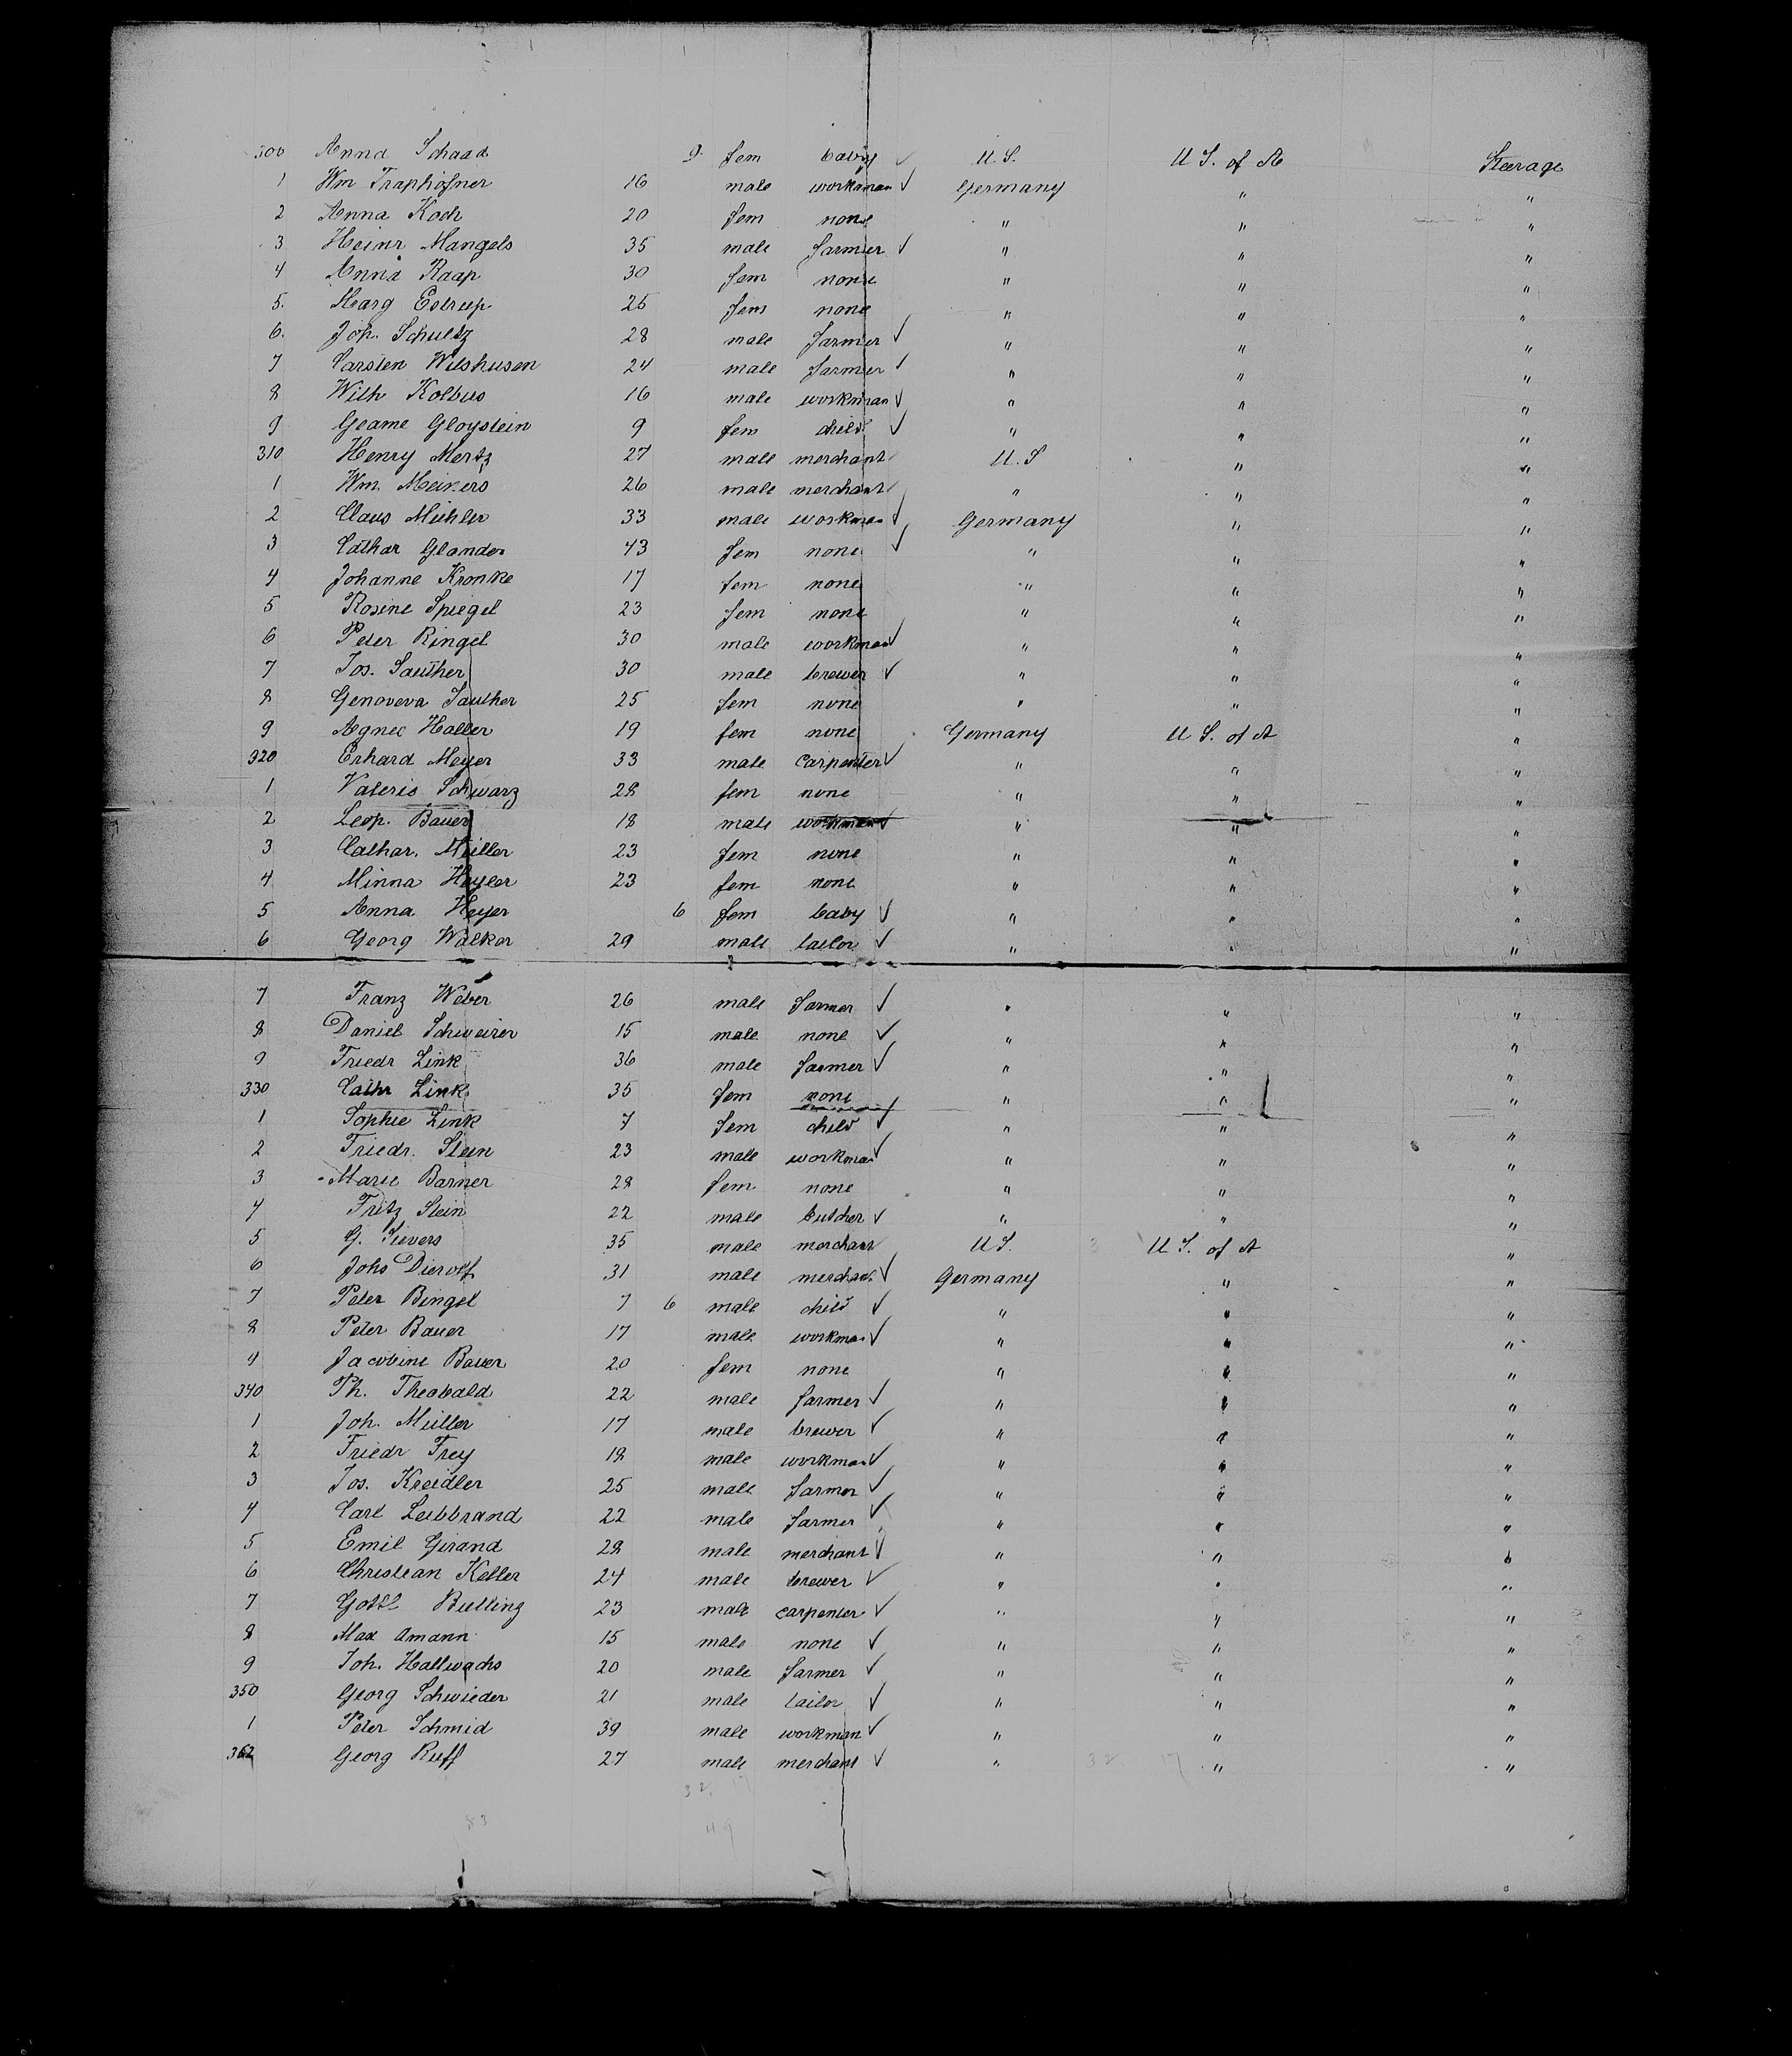 300 Anna Schaad 9. fem baby ✓ U.S. U S. of A Steerage
1 Wm Traphöfner 16 male workman ✓ Germany " "
2 Anna Koch 20 fem none " " "
3 Heinr Mangels 35 male farmer ✓ " " "
4 Anna Raap 30 fem none " " "
5. Marg Estrup 25 fem none " " "
6. Joh. Schultz 28 male farmer ✓ " " "
7 Carsten Wilshusen 24 male farmer ✓ " " "
8 Wilh Kolbus 16 male workman ✓ " " "
9 Gesine Gloystein 9 fem child ✓ " " "
310 Henry Mertz 27 male merchant ✓ U.S " "
1 Wm. Meiners 26 male merchant ✓ " " "
2 Claus Miehler 33 male workman ✓ Germany " "
3 Cathar Glander 43 fem none ✓ " " "
4 Johanne Kronke 17 fem none " " "
5 Rosine Spiegel 23 fem none " " "
6 Peter Ringel 30 male workman ✓ " " "
7 Jos. Sauther 30 male brewer ✓ " " "
8 Genoveva Sauther 25 fem none " " "
9 Agnes Haller 19 fem none Germany U S. of A "
320 Erhard Meyer 33 male carpenter ✓ " " "
1 Valeris Schwarz 28 fem none " " "
2 Leop. Bauer 18 male workman ✓ " " "
3 Cathar. Müller 23 fem none " " "
4 Minna Heyler 23 fem none " " "
5 Anna Heyer 6 fem baby ✓ " " "
6 Georg Walker 29 male tailor ✓ " " "
7 Franz Weber 26 male farmer ✓ " " "
8 Daniel Schweirer 15 male none ✓ " " "
9 Friedr Link 36 male farmer ✓ " " "
330 Cathr Link 35 fem none " " "
1 Sophie Link 7 fem child ✓ " " "
2 Friedr. Stein 23 male workman ✓ " " "
3 Marie Barner 28 fem none " " "
4 Fritz Stein 22 male butcher ✓ " " "
5 G. Sievers 35 male merchant U S. U S. of A "
6 Johs Dierolf 31 male merchant ✓ Germany " "
7 Peter Bingel 7 6 male child ✓ " " "
8 Peter Bauer 17 male workman ✓ " " "
9 Jacobine Bauer 20 fem none " " "
340 Th. Theobald 22 male farmer ✓ " " "
1 Joh. Müller 17 male brewer ✓ " " "
2 Friedr Frey 19 male workman ✓ " " "
3 Jos. Kreidler 25 male farmer ✓ " " "
4 Carl Leibbrand 22 male farmer ✓ " " "
5 Emil Girand 28 male merchant ✓ " " "
6 Christian Keller 24 male brewer ✓ " " "
7 Gottl Bulling 23 male carpenter ✓ " " "
8 Max Amann 15 male none ✓ " " "
9 Joh. Hallwachs 20 male farmer ✓ " " "
350 Georg Schwieder 21 male tailor ✓ " " "
1 Peter Schmid 39 male workman ✓ " " "
352 Georg Ruff 27 male merchant ✓ " 32 17 " "
32
49